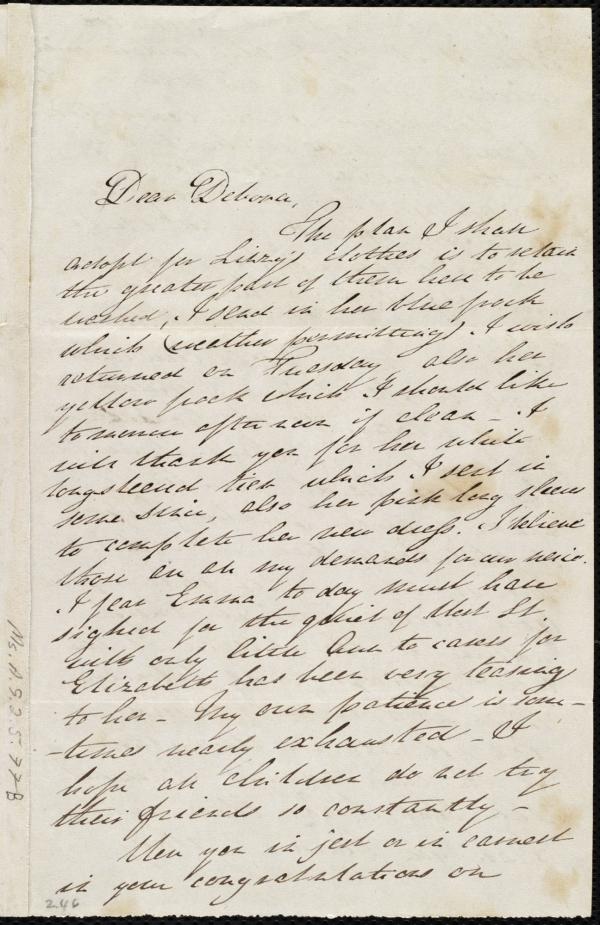 Dear Debora,
The plan I shall
adopt for Lizzy's clothes is to retain
the greater part of them here to be
washed, I send in her blue frock
which (weather permitting) I wish
returned on Tuesday, also her
yellow frock which I should like
tomorrow afternoon if clean - I
will thank you for her white
longsleeved tier which I sent in
some since, also her pink long sleeves
to complete her new dress. I believe
those are all my demands for our niece.
I fear Emma to day must have
sighed for the quiet of West St.
with only little Ann to caress for
Elizabeth has been very teasing
to her - My own patience is some-
-times nearly exhausted - I
hope all children do not try
their friends so constantly -
Were you in jest or in earnest
in your congratulations on
Ms.A.9.2.5.77B
2.46